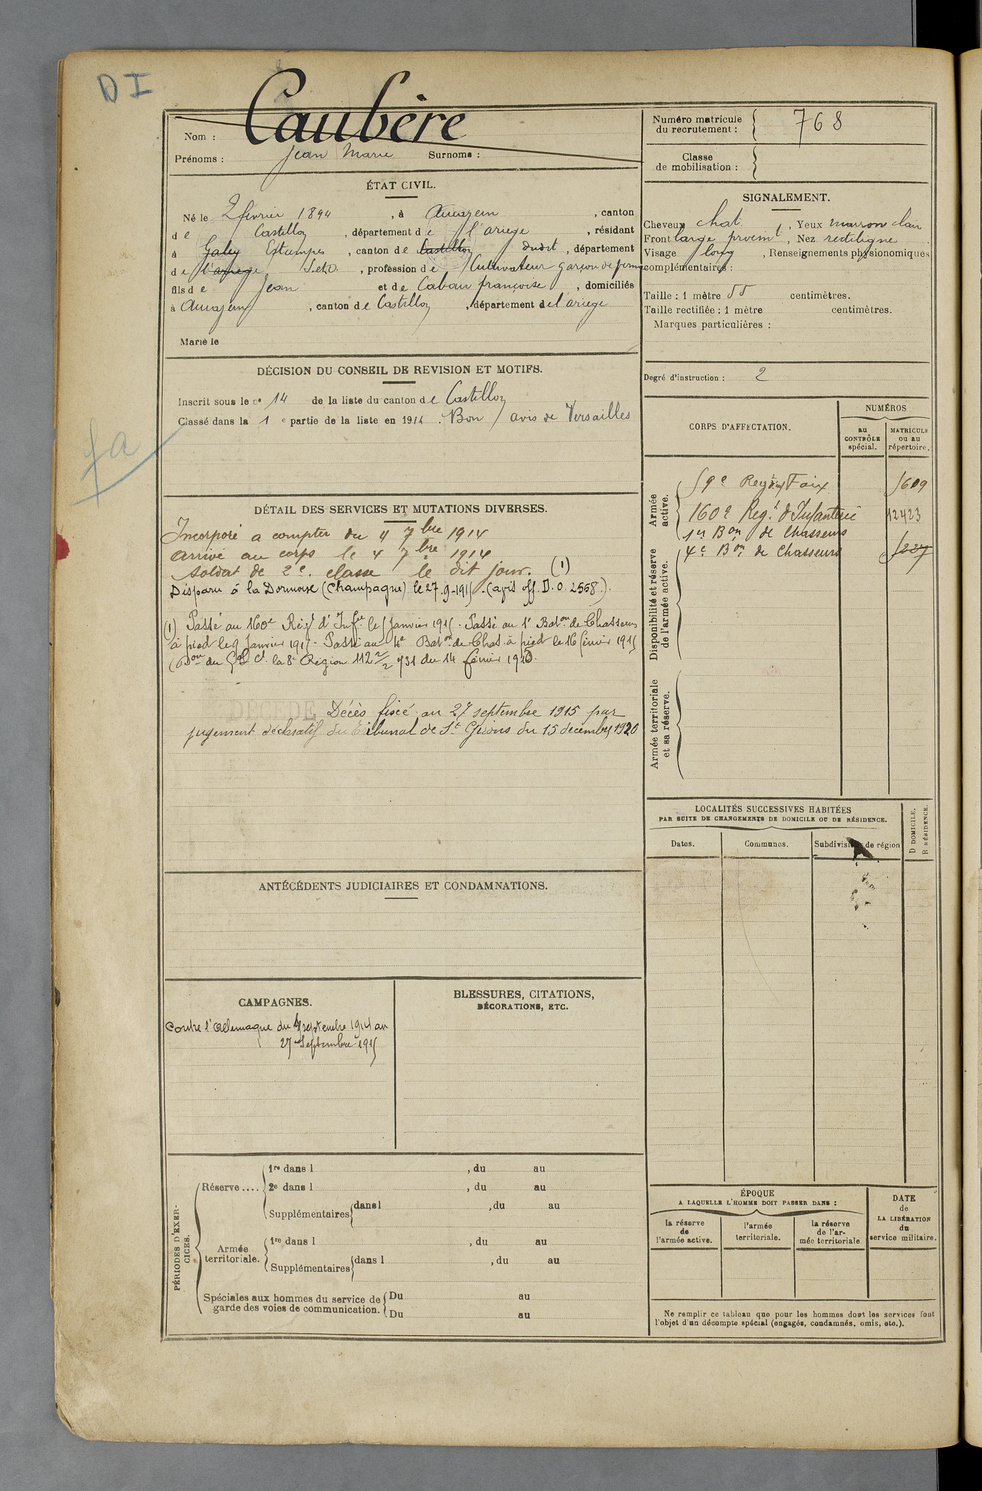 DI
Nom : Caubère
Prénoms : Jean Marie Surnoms :
Numéro matricule du recrutement : 768
Classe de mobilisation :
ÉTAT CIVIL.
Né le 2 février 1894, à Aucazein, canton
de Castillon, département de l'ariège, résidant
à Galey Estampes, canton de Castillon dudit, département
de l'ariège S et O, profession de Cultivateur garçon de ferme
fils de Jean et de Cabau françoise, domiciliés
à Aucazein, canton de Castillon, département de l'ariège
Marié le
SIGNALEMENT.
Cheveux chat, Yeux marron clair
Front large proemt, Nez rectiligne
Visage long, Renseignements physionomiques
complémentaires :
Taille : 1 mètre 55 centimètres.
Taille rectifiée : 1 mètre centimètres.
Marques particulières :
Degré d'instruction : 2
DÉCISION DU CONSEIL DE REVISION ET MOTIFS.
Inscrit sous le n° 14 de la liste du canton de Castillon
Classé dans la 1e partie de la liste en 1914. Bon avis de Versailles
DÉTAIL DES SERVICES ET MUTATIONS DIVERSES.
Incorporé a compter du 4 7bre 1914
arrivé au corps le 4 7bre 1914
soldat de 2e classe le dit jour. (1)
Disparu à la Dormoise (Champagne) le 27-9-1915. (apis off. D.O. 2558.).
(1) Passé au 160e Régt d'Infie le 5 Janvier 1915 - Passé au 1e Baton de Chasseurs
à pied le 9 Janvier 1915 - Passé au 4e Baton de Chas. à pied le 16 février 1915
la 8e Région 112 2/2 731 du 14 février 1915.
DÉCÉDÉ
Décès fixé au 27 septembre 1915 par
jugement déclaratif du Tribunal de St Girons du 15 decembre 1920
CORPS D'AFFECTATION.
NUMÉROS
au contrôle spécial.
matricule ou au répertoire.
Armée active.
59e Regt Foix 5609
160e Regt d'Infanterie 12423
1er Bon de Chasseurs
4e Bon de Chasseurs 5227
Disponibilité et réserve de l'armée active.
Armée territoriale et sa réserve.
LOCALITÉS SUCCESSIVES HABITÉES
PAR SUITE DE CHANGEMENTS DE DOMICILE OU DE RÉSIDENCE.
Dates.
Communes.
Subdivision de région
D DOMICILE.
R RÉSIDENCE.
ANTÉCÉDENTS JUDICIAIRES ET CONDAMNATIONS.
CAMPAGNES.
Contre l'Allemagne du 4 septembre 1914 au
27 Septembre 1915
BLESSURES, CITATIONS,
DÉCORATIONS, ETC.
PÉRIODES D'EXERCICES.
Réserve....
1re dans l , du au
2e dans l , du au
Supplémentaires dans l , du au
Armée territoriale.
1re dans l , du au
Supplémentaires dans l , du au
Spéciales aux hommes du service de garde des voies de communication.
Du au
Du au
ÉPOQUE
A LAQUELLE L'HOMME DOIT PASSER DANS :
la réserve de l'armée active.
l'armée territoriale.
la réserve de l'armée territoriale
DATE de LA LIBÉRATION du service militaire.
Ne remplir ce tableau que pour les hommes dont les services font
l'objet d'un décompte spécial (engagés, condamnés, omis, etc.).